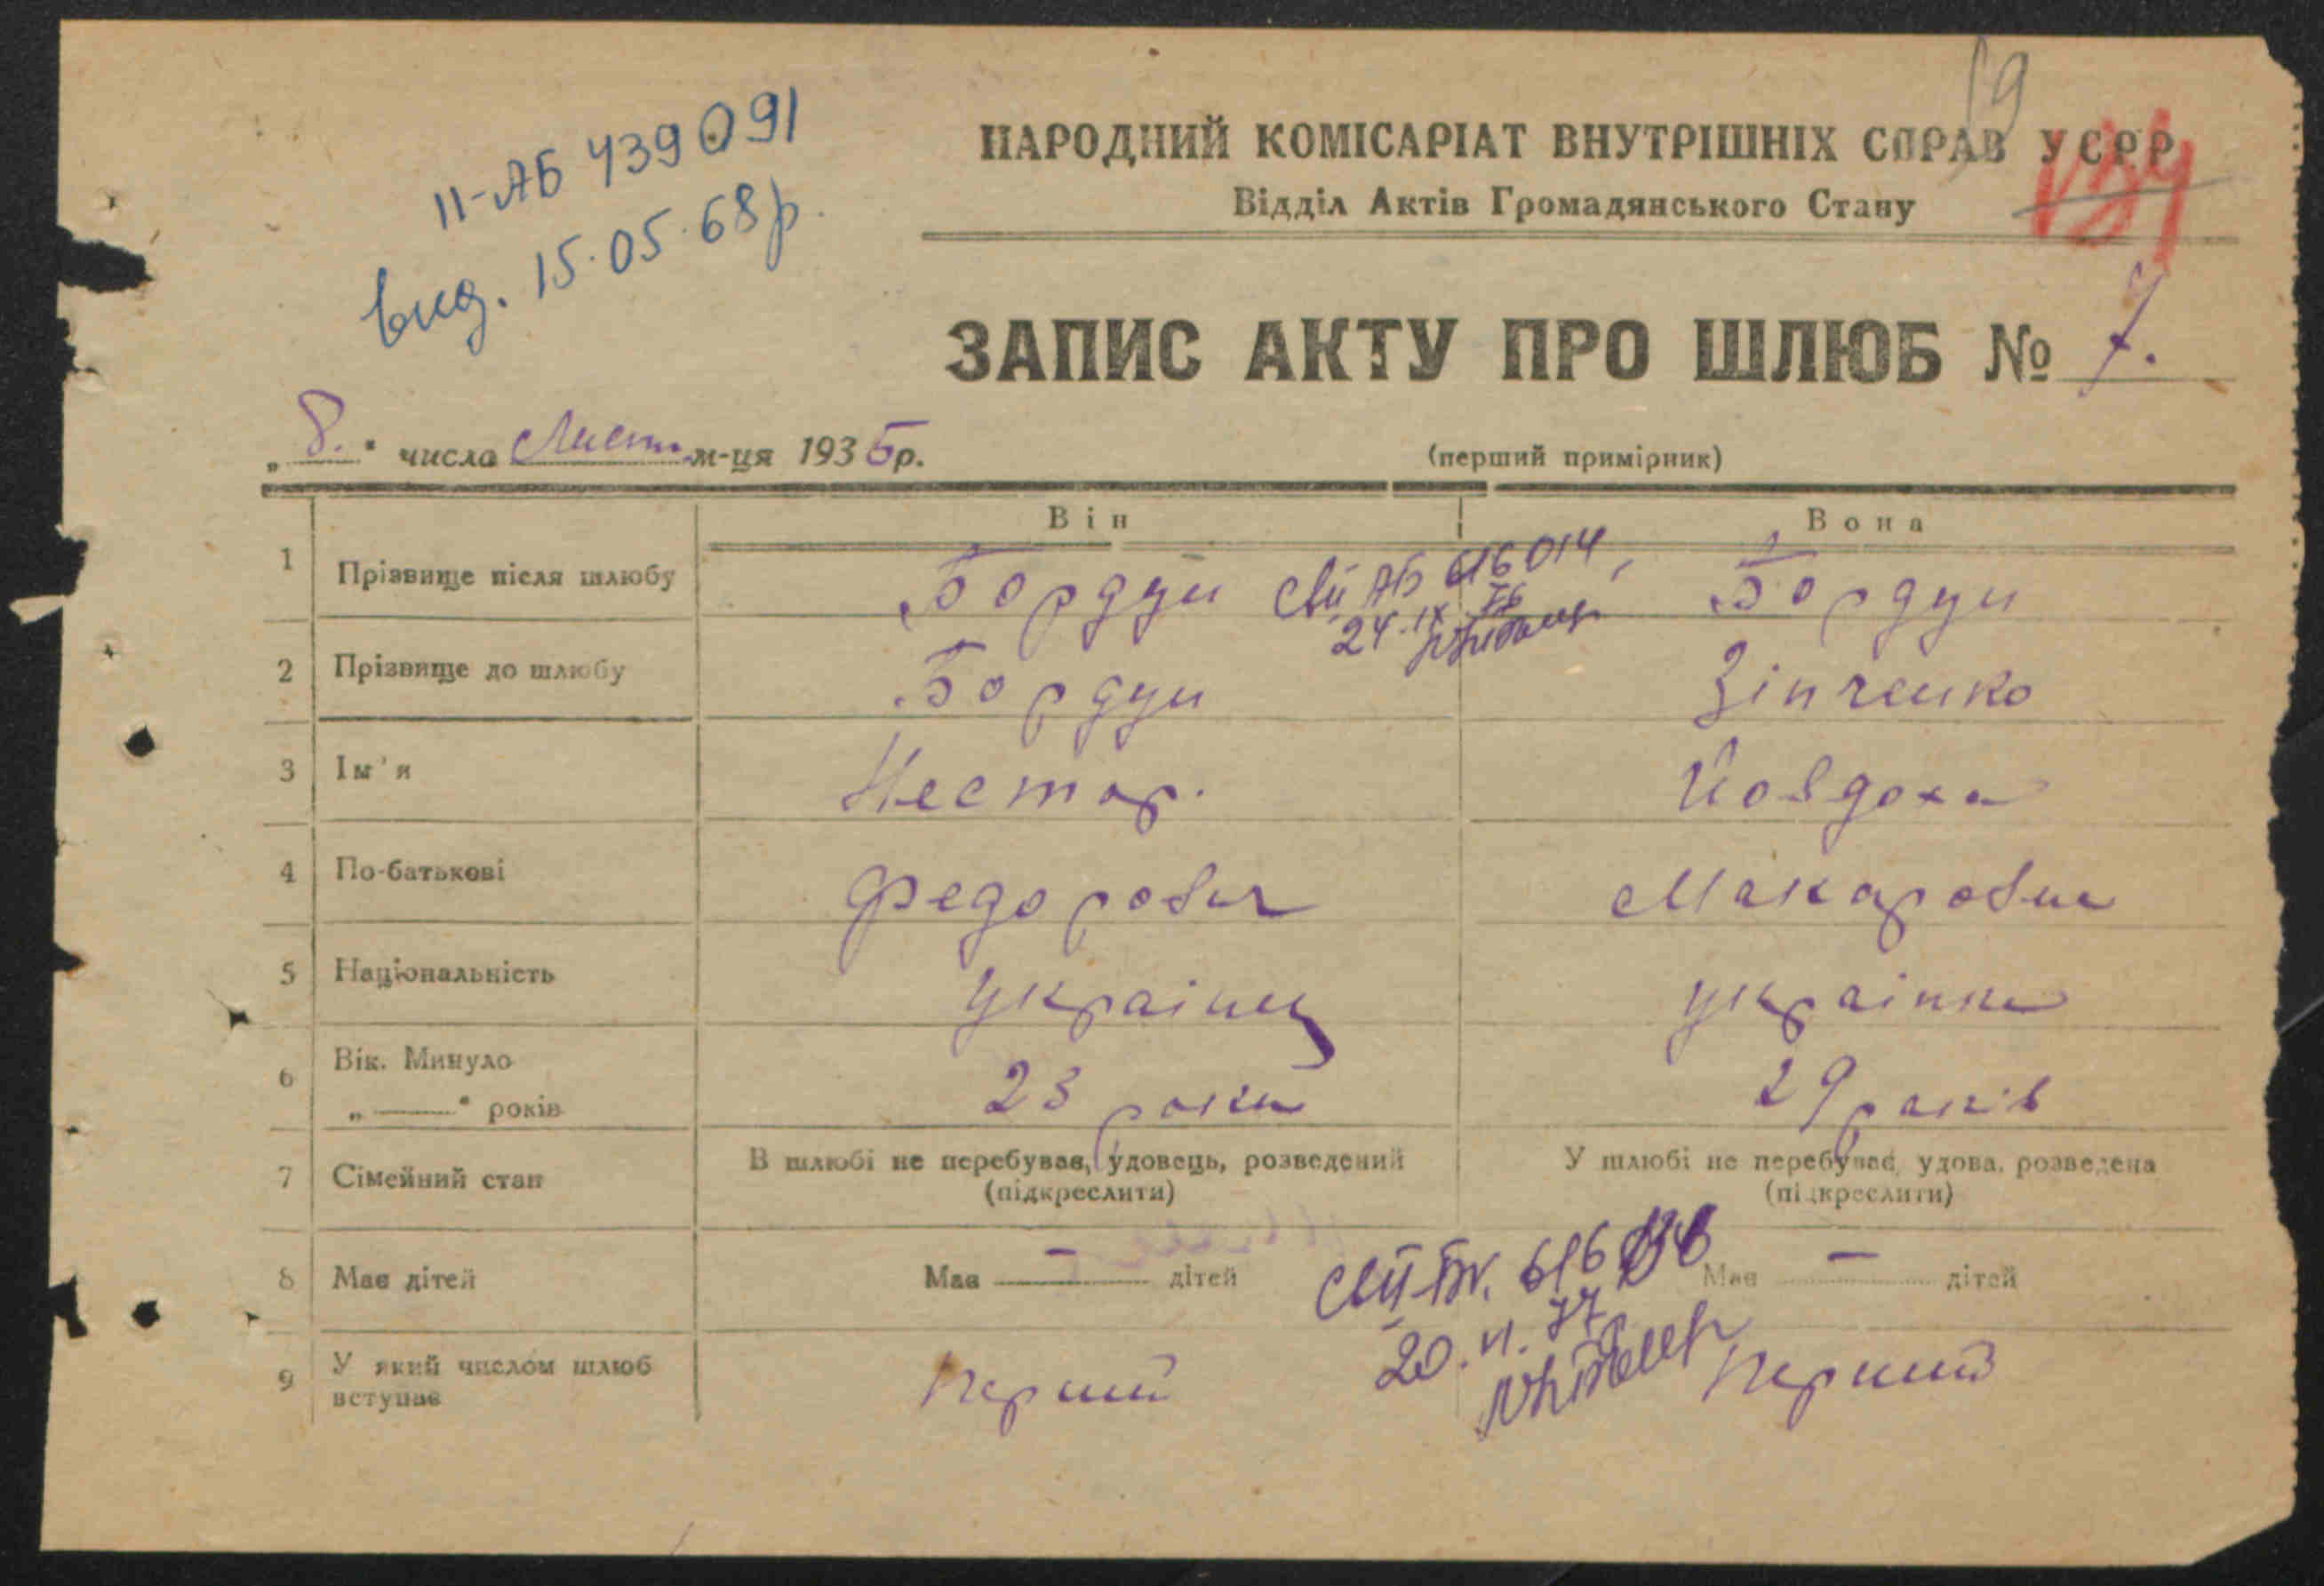 19
II-АБ 439091
вид. 15.05.68р.
НАРОДНИЙ КОМІСАРІАТ ВНУТРІШНІХ СПРАВ УСРР
Відділ Актів Громадянського Стану
ЗАПИС АКТУ ПРО ШЛЮБ № 7.
„8.“ числа Лист. м-ця 1935р.
(перший примірник)
Він Вона
1 Прізвище після шлюбу Бордун Бордун
СвII АБ 616014,
24.IX.76
2 Прізвище до шлюбу Бордун Зінченко
3 Ім'я Нестор. Йовдоха
4 По-батькові Федорович Макаровна
5 Національність українец українка
6 Вік. Минуло „——“ років 23 роки 29 років
7 Сімейний стан В шлюбі не перебував, удовець, розведений (підкреслити) У шлюбі не перебував, удова, розведена (підкреслити)
8 Має дітей Має — дітей Має — дітей
20.VI.77
9 У який числом шлюб вступає Перший Перший